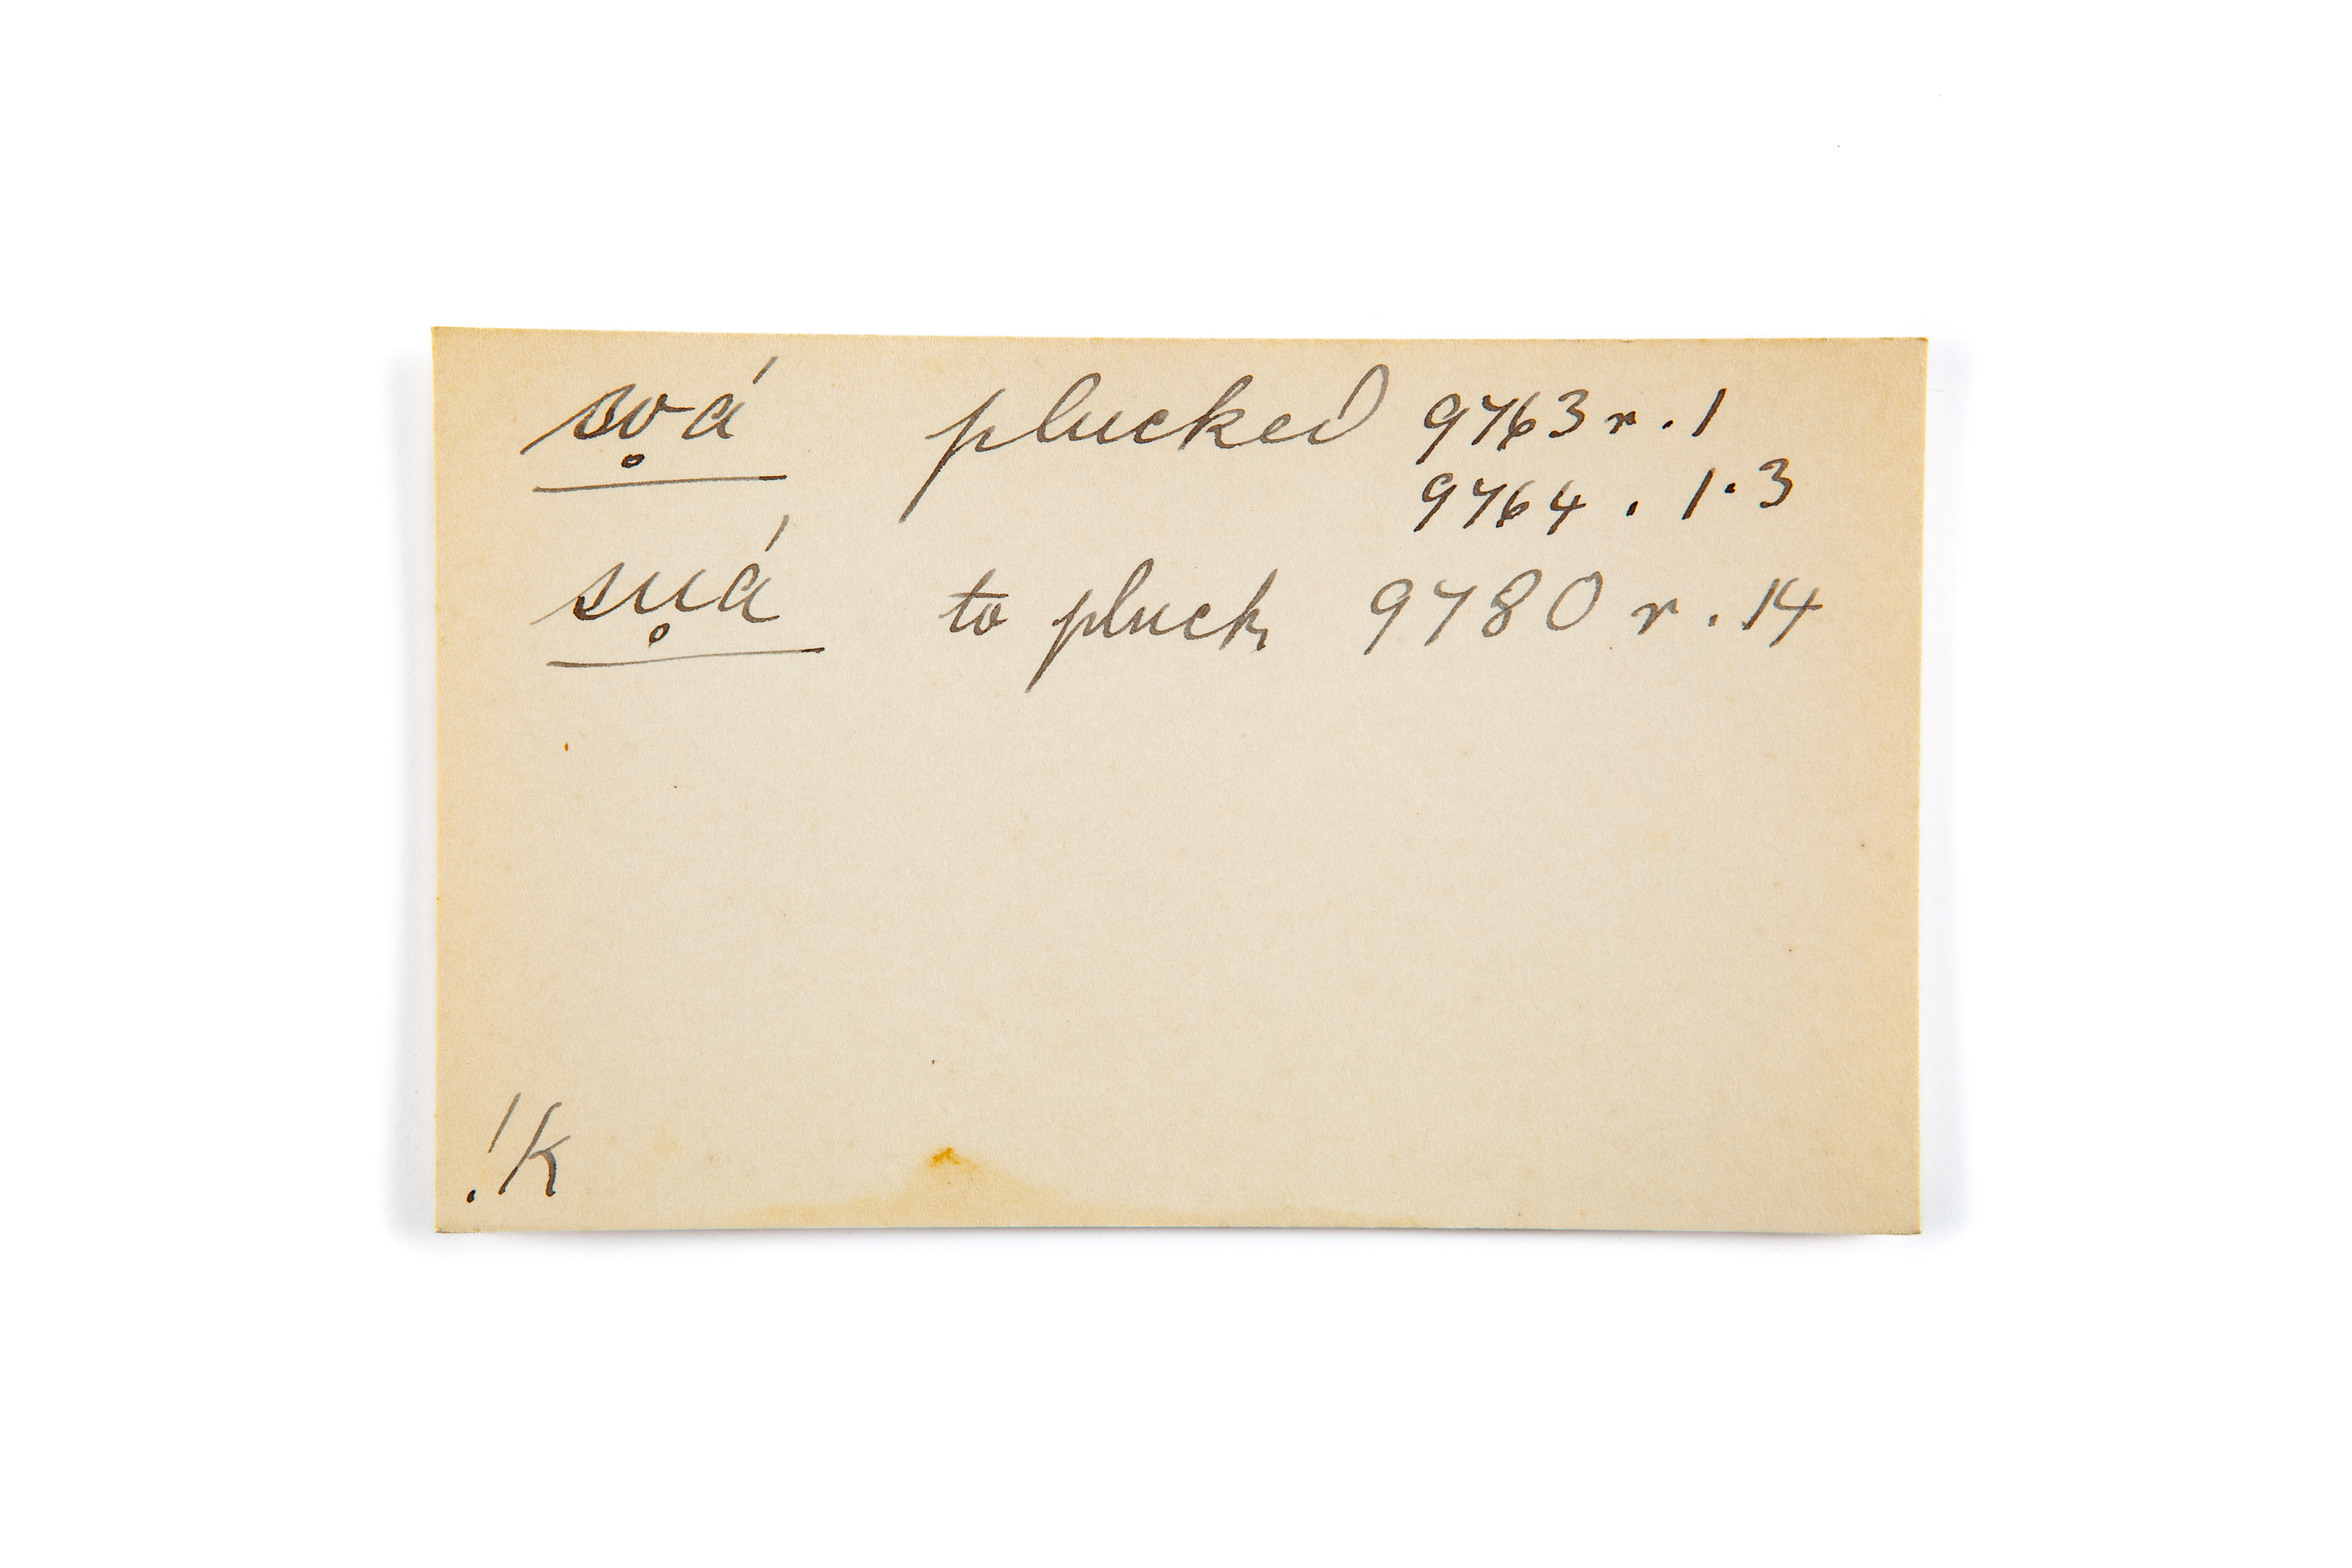 so̥á plucked 9763 r. 1
9764 . 1.3
su̥á to pluck 9780 r. 14
!K